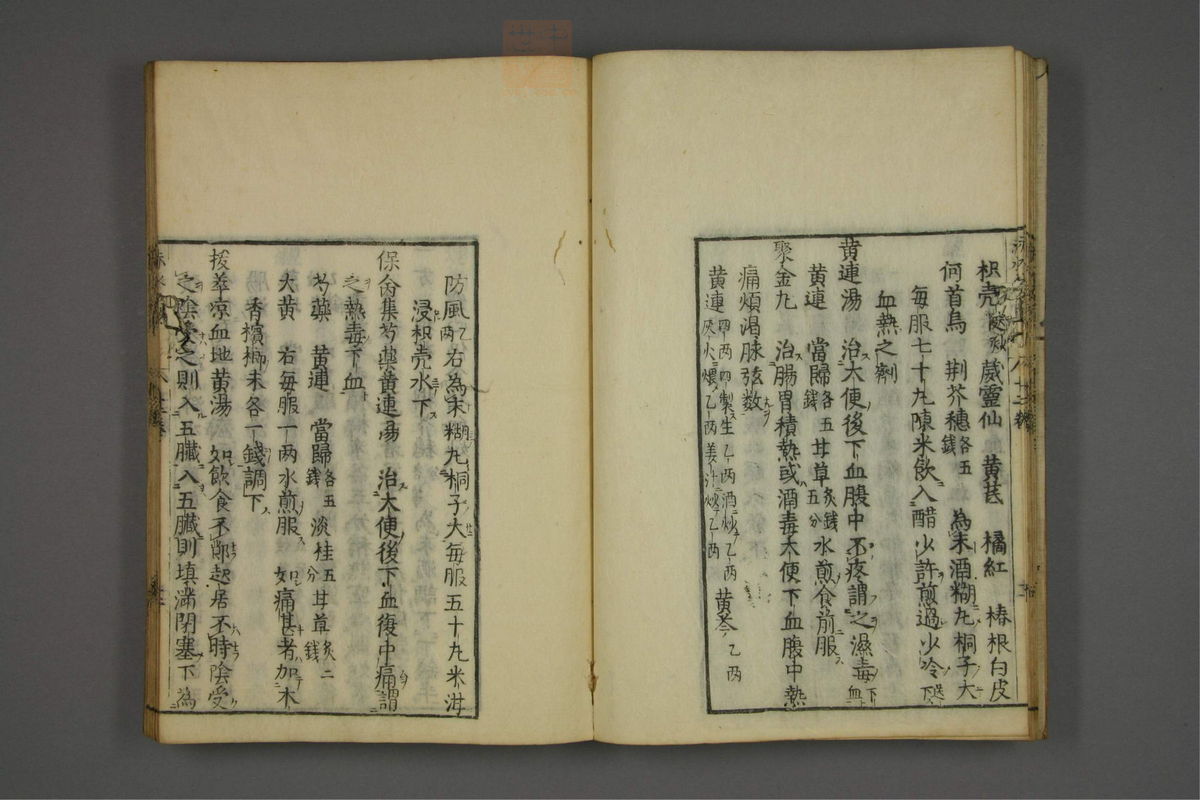 枳壳 葳靈仙 黄芪 橘紅 椿根白皮
何首烏 荆芥穗各五錢 為末酒糊丸桐子大
毎服七十丸陳米飲入醋少許煎過少冷
血熱之劑
黄連湯 治大便後下血腹中不疼謂之濕毒下血
黄連 當歸各五錢 甘草炙錢五分 水煎食前服
聚金丸 治腸胃積熱或酒毒大便下血腹中熱
痛煩渇脉弦数
黄連四両四製生乙両酒炒乙両灰火煨乙両姜汁炒乙両 黄芩乙両
防風乙両 右為末糊丸桐子大毎服五十丸米泔
浸枳壳水下
保命集芍藥黄連湯 治大便後下血復中痛謂
之熱毒下血
芍藥 黄連 當歸各五錢 淡桂五分 甘草炙二錢
大黄 右毎服一両水煎服 如痛甚者加木
香檳榔末各一錢調下
拔萃凉血地黄湯 如飲食不節起居不時陰受
之陰受之則入五臓入五臓則填満閉塞下為